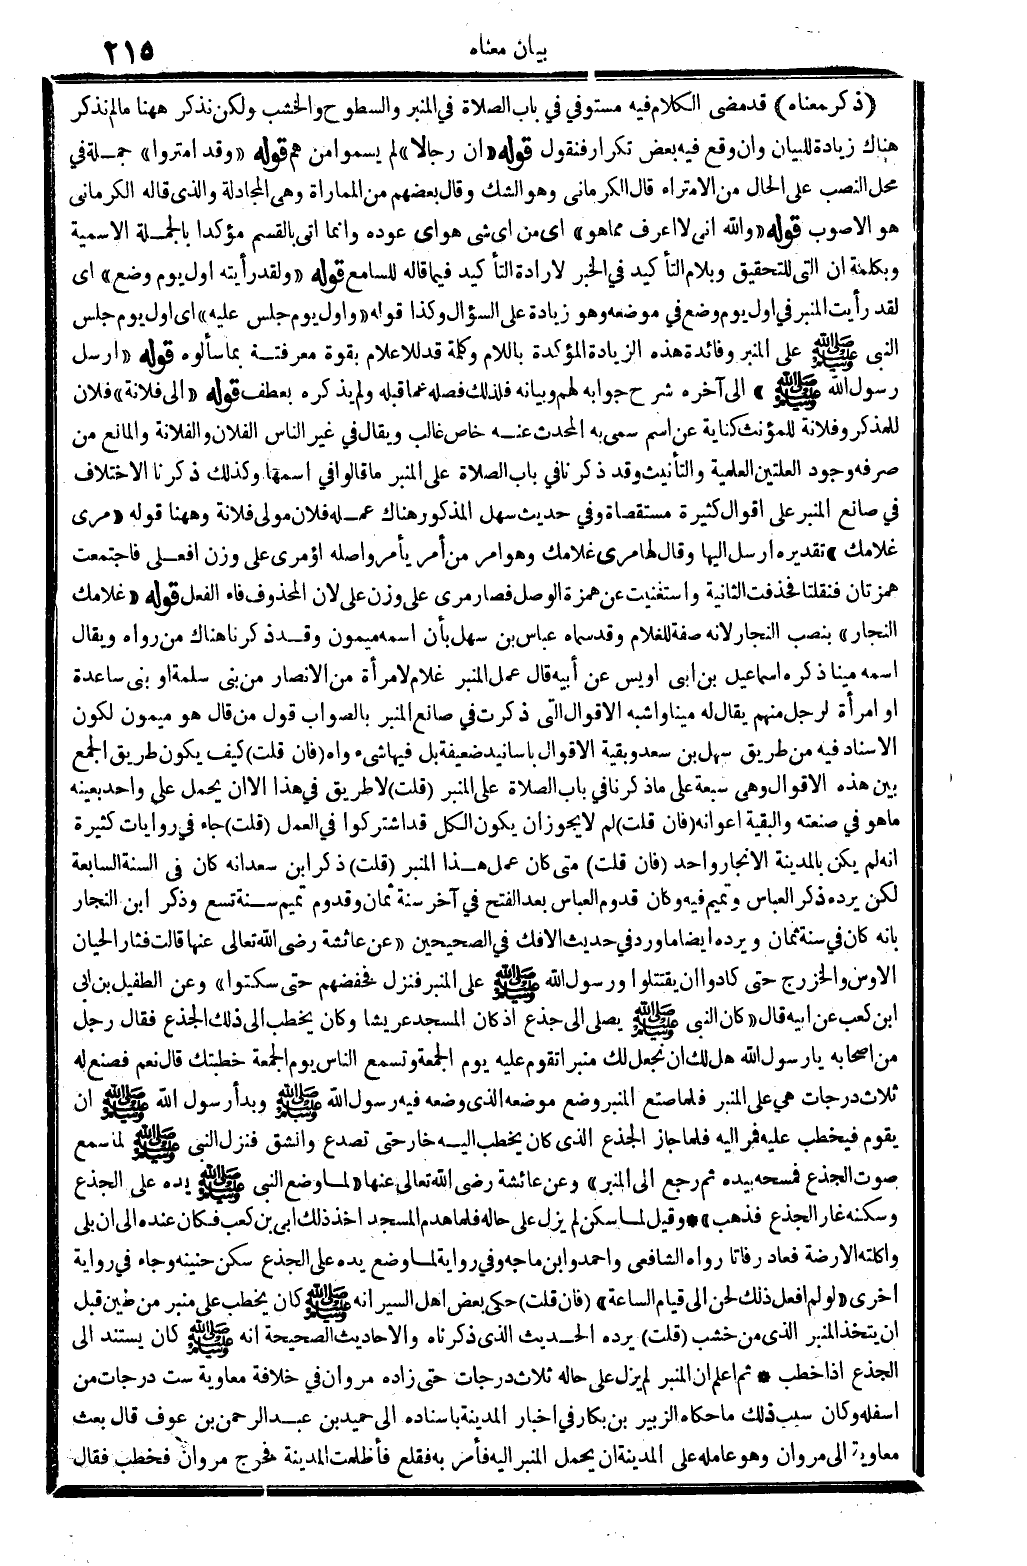 بيان معناه
٢١٥
(ذكر معناه) قد مضى الكلام فيه مستوفي في باب الصلاة في المنبر والسطوح والخشب ولكن نذكر ههنا مالم نذكر
هناك زيادة للبيان وان وقع فيه بعض تكرار فنقول قوله «ان رجالا» لم يسموا من هم قوله «وقد امتروا» جملة في
محل النصب على الحال من الامتراء قال الكرماني وهو الشك وقال بعضهم من المماراة وهى المجادلة والذى قاله الكرمانى
هو الاصوب قوله «والله انى لا اعرف مماهو» اى من اى شى هو اى عوده وانما اتى بالقسم مؤكدا بالجملة الاسمية
وبكلمة ان التى للتحقيق وبلام التأكيد في الخبر لارادة التأكيد فيما قاله للسامع قوله «ولقد رأيته اول يوم وضع» اى
لقد رأيت المنبر في اول يوم وضع في موضعه وهو زيادة على السؤال وكذا قوله «واول يوم جلس عليه» اى اول يوم جلس
النبى ﷺ على المنبر وفائدة هذه الزيادة المؤكدة باللام وكلمة قد للاعلام بقوة معرفتـة بما سألوه قوله «ارسل
رسول الله ﷺ» الى آخره شرح جوابه لهم وبيانه فلذلك فصله عما قبله ولم يذكره بعطف قوله «الى فلانة» فلان
للمذكر وفلانة للمؤنث كناية عن اسم سمى به المحدث عنه خاص غالب ويقال في غير الناس الفلان والفلانة والمانع من
صرفه وجود العلتين العلمية والتأنيث وقد ذكرنا في باب الصلاة على المنبر ما قالوا في اسمها وكذلك ذكرنا الاختلاف
في صانع المنبر على اقوال كثيرة مستقصاة وفي حديث سهل المذكور هناك عمله فلان مولى فلانة وههنا قوله «مرى
غلامك» تقديره ارسل اليها وقال لها مرى غلامك وهو امر من أمر يأمر واصله اؤمرى على وزن افعلى فاجتمعت
همزتان فنقلتا فحذفت الثانية واستغنيت عن همزة الوصل فصار مرى على وزن على لان المحذوف فاء الفعل قوله «غلامك
النجار» بنصب النجار لانه صفة للغلام وقد سماه عباس بن سهل بأن اسمه ميمون وقد ذكرنا هناك من رواه ويقال
اسمه مينا ذكره اسماعيل بن ابى اويس عن أبيه قال عمل المنبر غلام لامرأة من الانصار من بنى سلمة او بنى ساعدة
او امرأة لرجل منهم يقال له مينا واشبه الاقوال التى ذكرت في صانع المنبر بالصواب قول من قال هو ميمون لكون
الاسناد فيه من طريق سهل بن سعد وبقية الاقوال باسانيد ضعيفة بل فيها شىء واه (فان قلت) كيف يكون طريق الجمع
بين هذه الاقوال وهى سبعة على ما ذكرنا في باب الصلاة على المنبر (قلت) لا طريق في هذا الا ان يحمل على واحد بعينه
ماهو في صنعته والبقية اعوانه (فان قلت) لم لا يجوز ان يكون الكل قد اشتركوا في العمل (قلت) جاء في روايات كثيرة
انه لم يكن بالمدينة الا نجار واحد (فان قلت) متى كان عمل هذا المنبر (قلت) ذكر ابن سعد انه كان فى السنة السابعة
لكن يرده ذكر العباس وتميم فيه وكان قدوم العباس بعد الفتح في آخر سنة ثمان وقدوم تميم سنة تسع وذكر ابن النجار
بانه كان في سنة ثمان ويرده ايضا ما ورد في حديث الافك في الصحيحين «عن عائشة رضى الله تعالى عنها قالت فثار الحيان
الاوس والخزرج حتى كادوا ان يقتتلوا ورسول الله ﷺ على المنبر فنزل فخفضهم حتى سكتوا» وعن الطفيل بن ابى
ابن كعب عن ابيه قال «كان النبى ﷺ يصلى الى جذع اذ كان المسجد عريشا وكان يخطب الى ذلك الجذع فقال رجل
من اصحابه يا رسول الله هل لك ان نجعل لك منبرا تقوم عليه يوم الجمعة وتسمع الناس يوم الجمعة خطبتك قال نعم فصنع له
ثلاث درجات هي على المنبر فلما صنع المنبر وضع موضعه الذى وضعه فيه رسول الله ﷺ وبدأ رسول الله ﷺ ان
يقوم فيخطب عليه فمر اليه فلما جاز الجذع الذى كان يخطب اليه خار حتى تصدع وانشق فنزل النبى ﷺ لما سمع
صوت الجذع فمسحه بيده ثم رجع الى المنبر» وعن عائشة رضى الله تعالى عنها «لما وضع النبى ﷺ يده على الجذع
وسكنه غار الجذع فذهب» * وقيل لما سكن لم يزل على حاله فلما هدم المسجد اخذ ذلك ابى بن كعب فكان عنده الى ان بلى
واكلته الارضة فعاد رفاتا رواه الشافعى واحمد وابن ماجه وفي رواية لما وضع يده على الجذع سكن حنينه وجاء في رواية
اخرى «لو لم افعل ذلك لحن الى قيام الساعة» (فان قلت) حكى بعض اهل السير انه ﷺ كان يخطب على منبر من طين قبل
ان يتخذ المنبر الذى من خشب (قلت) يرده الحديث الذى ذكرناه والاحاديث الصحيحة انه ﷺ كان يستند الى
الجذع اذا خطب * ثم اعلم ان المنبر لم يزل على حاله ثلاث درجات حتى زاده مروان في خلافة معاوية ست درجات من
اسفله وكان سبب ذلك ما حكاه الزبير بن بكار في اخبار المدينة باسناده الى حميد بن عبد الرحمن بن عوف قال بعث
معاوية الى مروان وهو عامله على المدينة ان يحمل المنبر اليه فأمر به فقلع فأظلمت المدينة فخرج مروان فخطب فقال